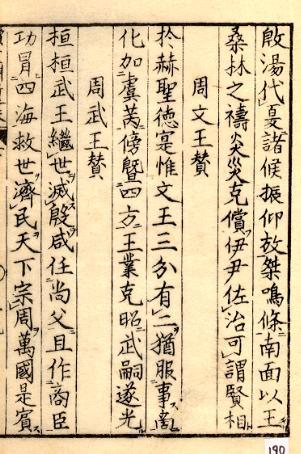 殷湯代夏諸候振仰放桀鳴條南面以王
桑林之禱炎災克償伊尹佐治可謂賢相
周文王賛
於赫聖德寔惟文王三分有二猶服事商
化加虞芮傍曁四方王業克昭武嗣遂光
周武王賛
桓桓武王繼世滅殷咸任尚父且作商臣
功冒四海救世濟民天下宗周萬國是賓
190